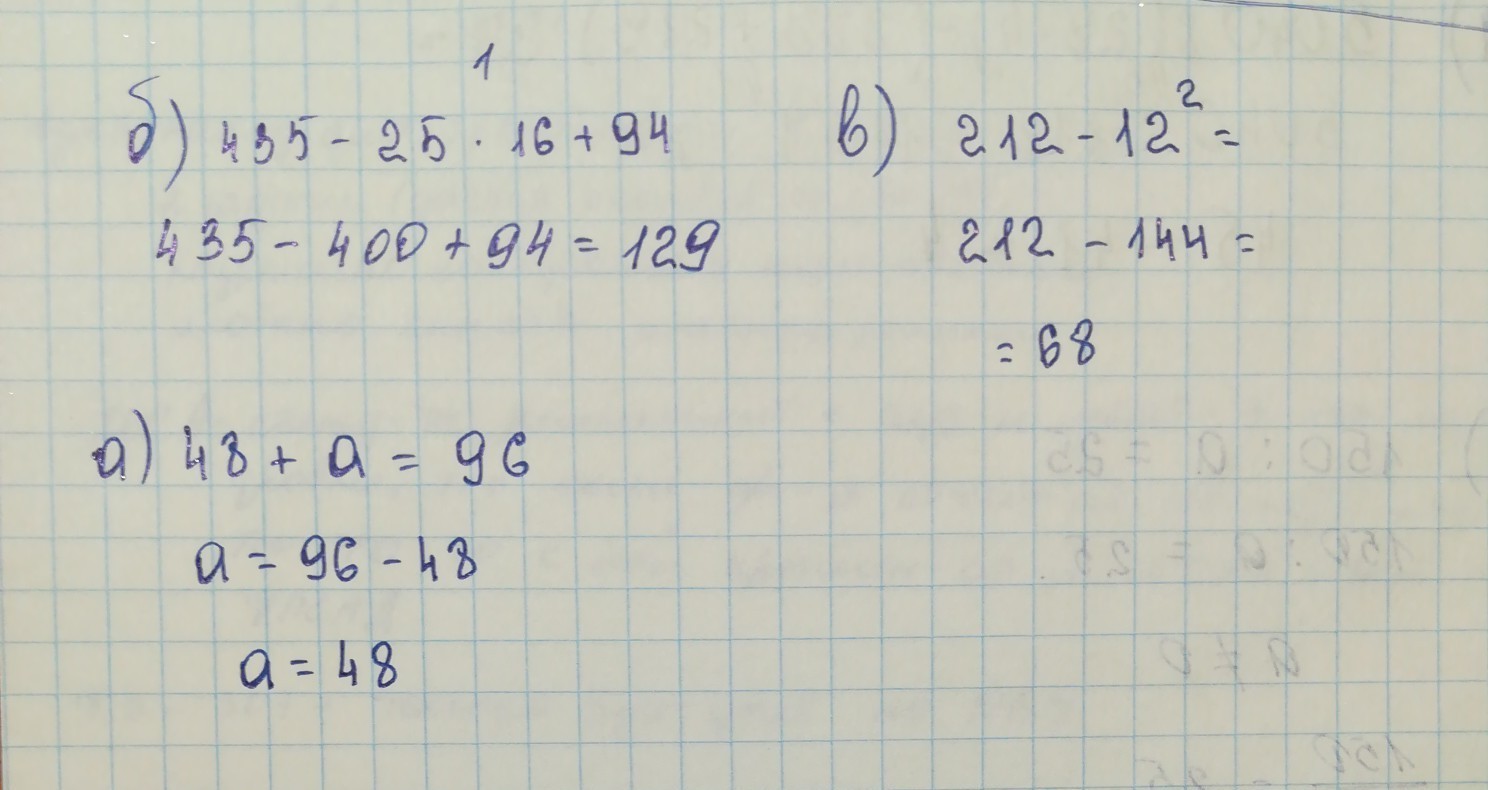 1
б) 435 - 25 · 16 + 94
435 - 400 + 94 = 129
в) 212 - 12² =
212 - 144 =
= 68
а) 48 + а = 96
а = 96 - 48
а = 48